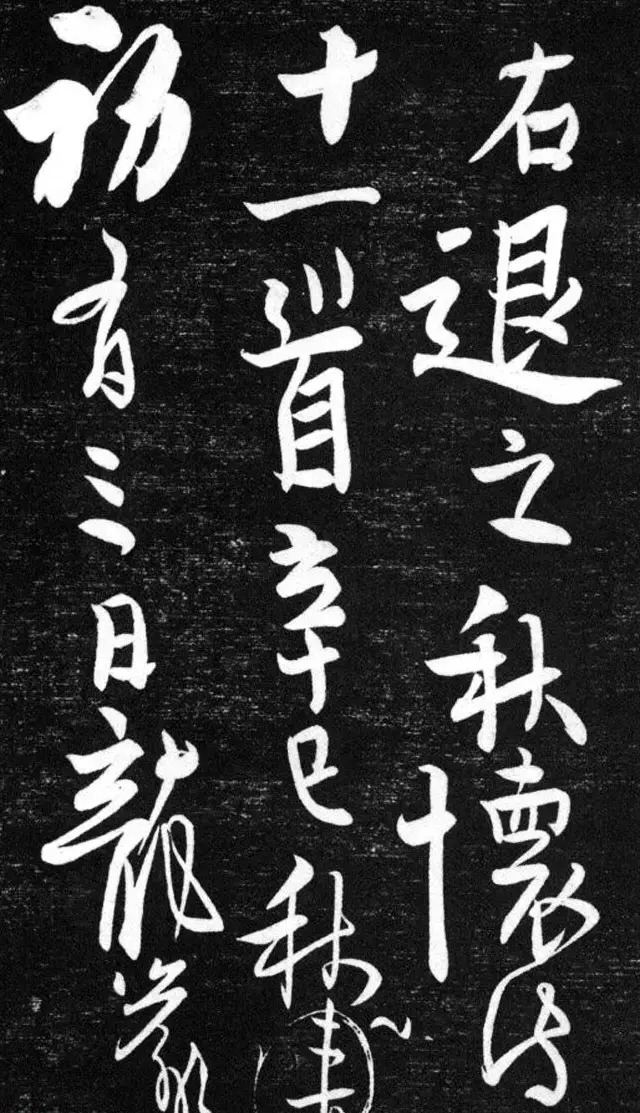 右退之秋懷詩
十一首辛巳秋
初有三日龍